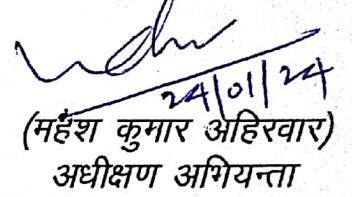 24/01/24
(महेश कुमार अहिरवार)
अधीक्षण अभियन्ता